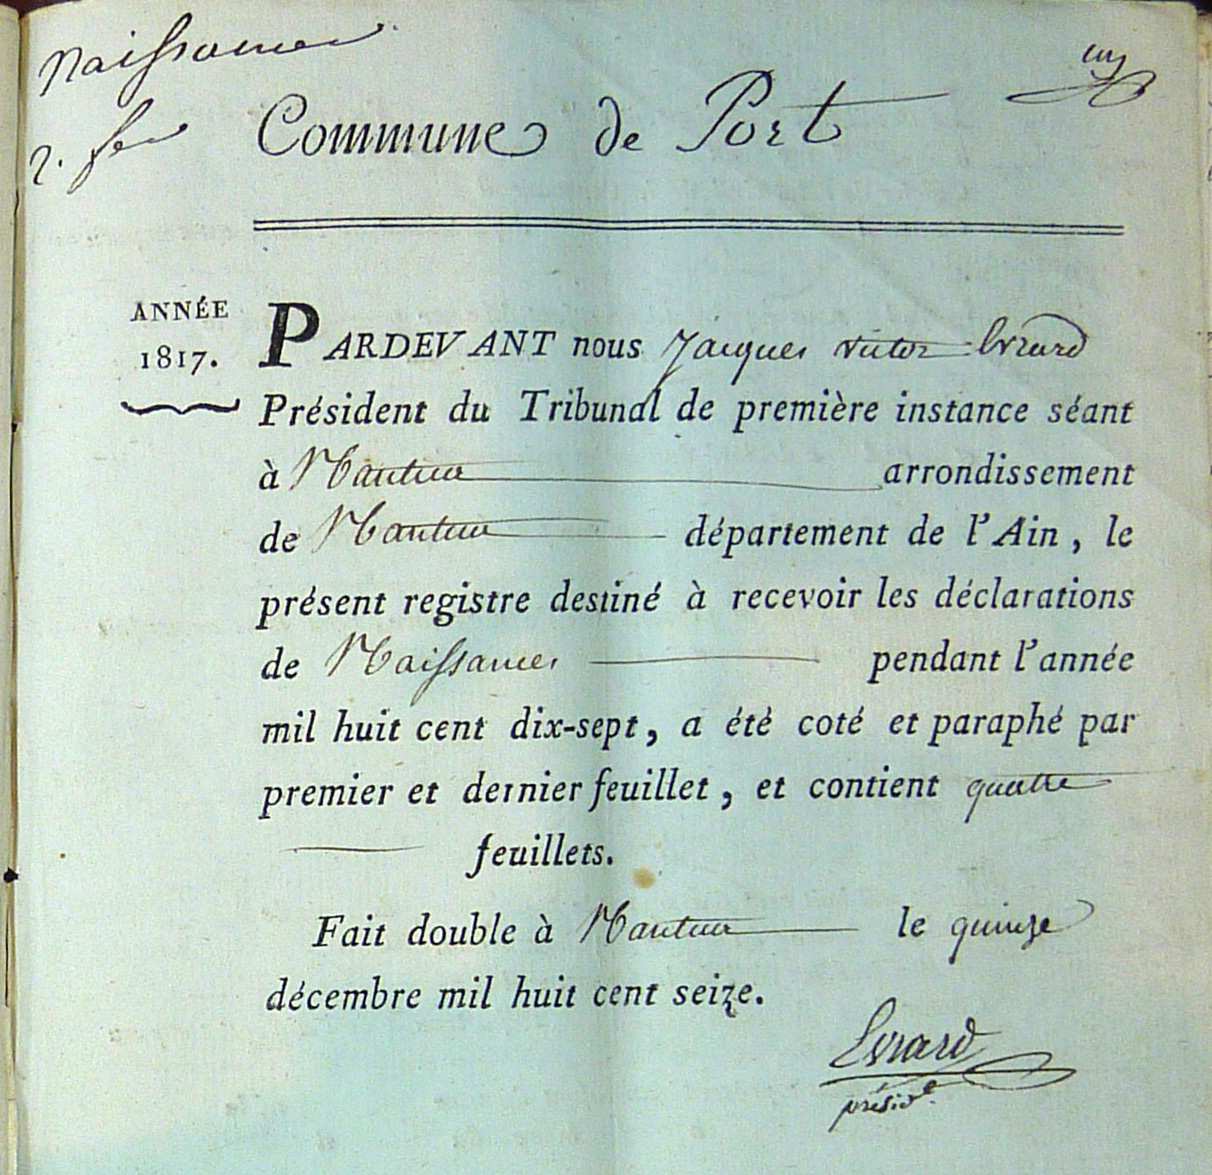 Naissances
2. fe
Commune de Port
un
ANNÉE
1817.
PARDEVANT nous Jacques Victor Evrard
Président du Tribunal de première instance séant
à Nantua arrondissement
de Nantua département de l'Ain, le
présent registre destiné à recevoir les déclarations
de Naissances pendant l'année
mil huit cent dix-sept, a été coté et paraphé par
premier et dernier feuillet, et contient quatre
feuillets.
Fait double à Nantua le quinze
décembre mil huit cent seize.
Evrard
présidt.